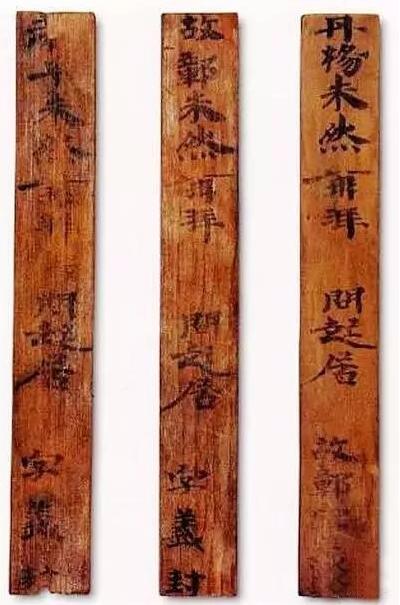 丹楊朱然再拜 問起居 故鄣
故鄣朱然再拜 問起居 字義封
朱然再拜 問起居 字義封